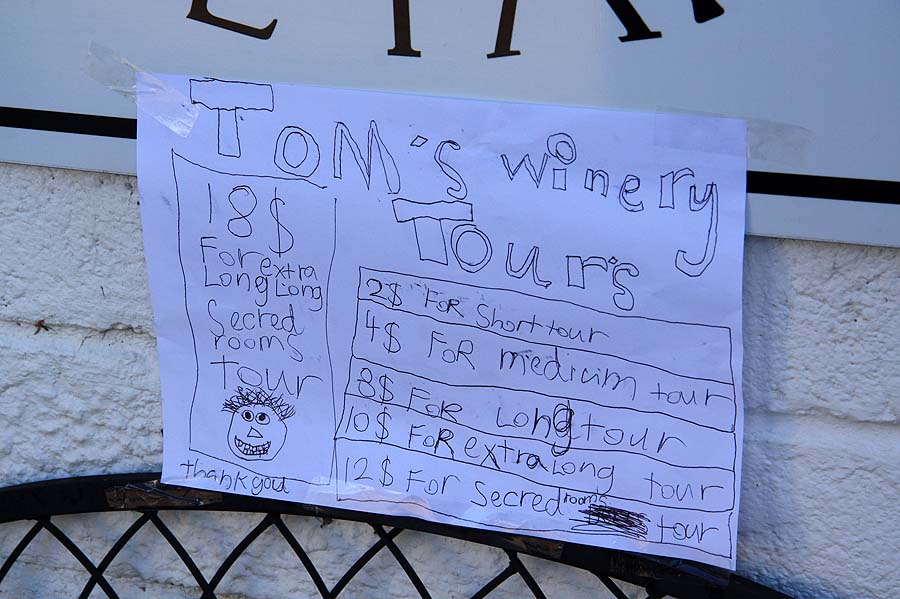 TOM's winery
Tour's
18$
For extra
Long Long
Secred
rooms
tour
thank you
2$ FOR Short tour
4$ FOR medicim tour
8$ FOR Long tour
10$ FOR extra Long tour
12$ FOR Secred rooms tour